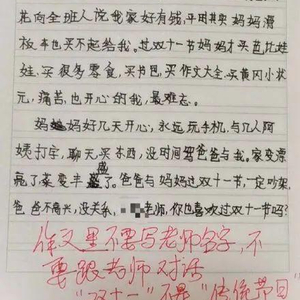 花向全班人说我家好有钱,平时其实妈妈滑
板车也买不起给我。过双十一节妈妈才买芭比娃
娃,买很多零食,买书包,买作文大全,买黄冈小状
元,痛苦,也开心的我,最难忘。
妈妈好几天开心,永远玩手机,与几人阿
姨打字,聊天买东西,没时间骂爸爸与我。家变漂
亮了菜变丰盛了。爸爸与妈妈过双十一节,一定吵架,
爸爸不高兴,没关系,老师,你也喜欢过双十一节吗?
盛
作文里不要写老师名字,不
要跟老师对话
"双十一"不是"传统节日"